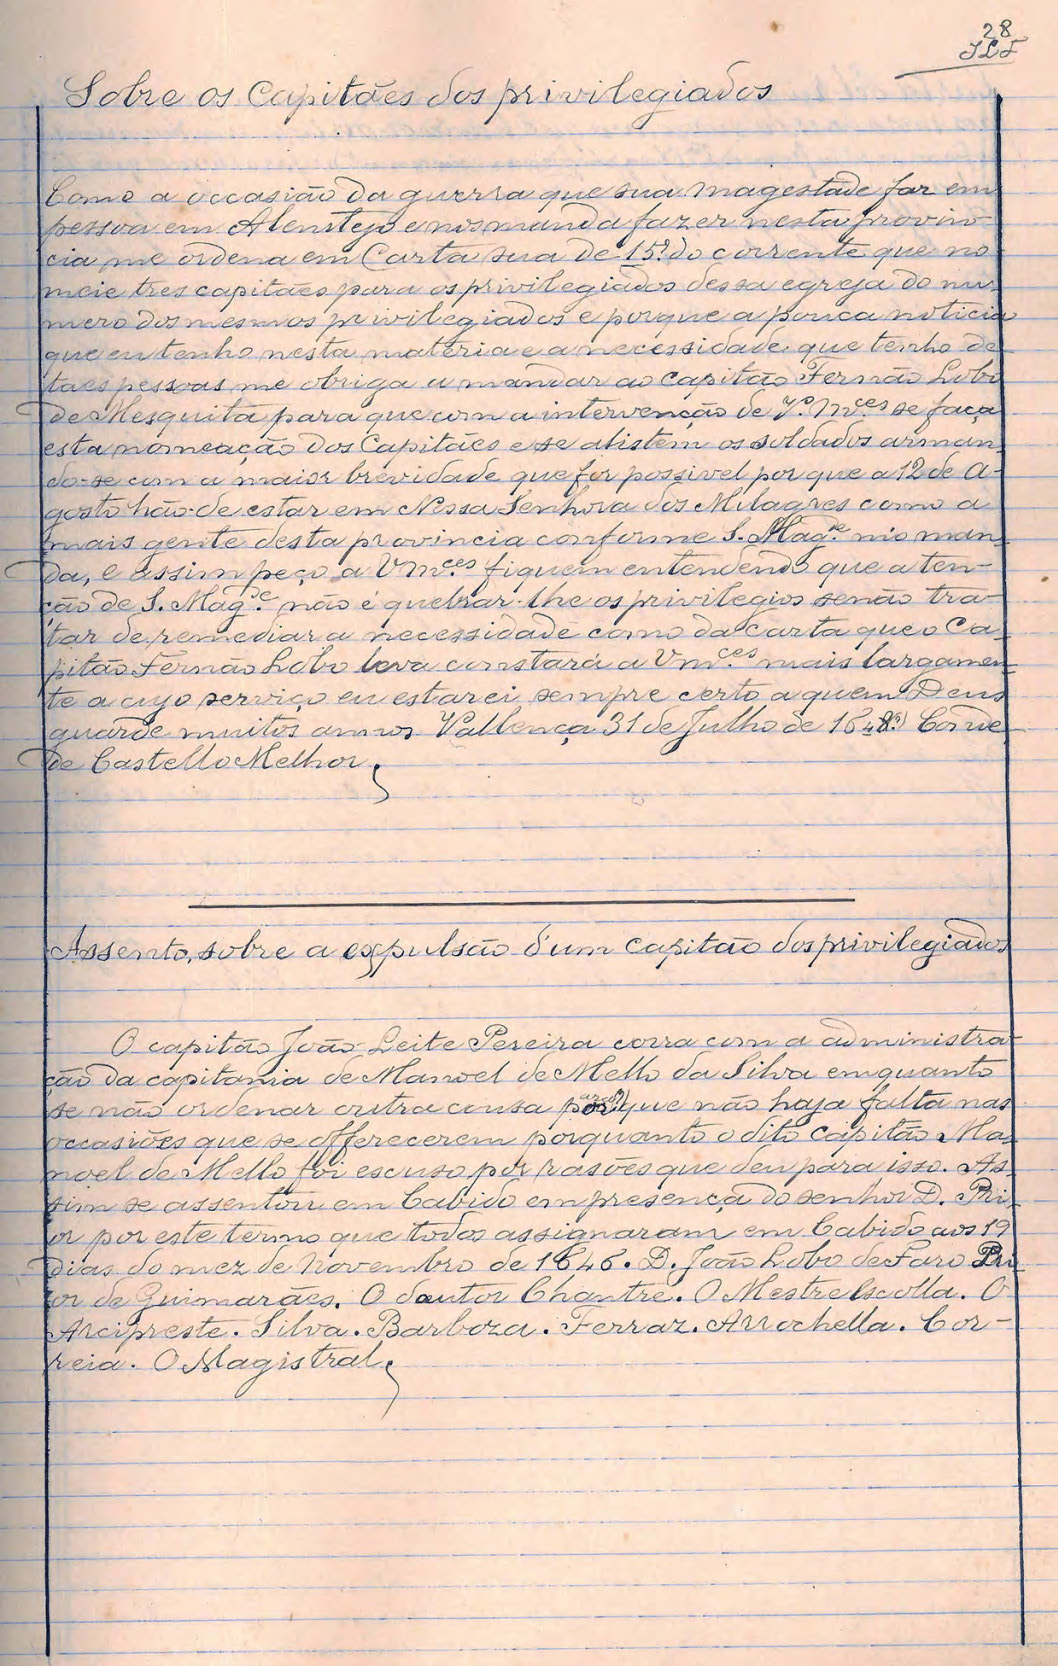 28
JLF
Sobre os Capitães dos privilegiados
Como a occasião da guerra que sua magestade far em
pessoa em Alemtejo e nos manda fazer nesta provin-
cia me ordena em Carta sua de 15 do corrente que no
meie tres capitães para os privilegiados dessa egreja do nu
mero dos mesmos privilegiados e porque a pouca noticia
que eu tenho nesta materia e a necessidade que tenho de
taes pessoas me obriga a mandar ao capitão Fernão Lobo
de Mesquita para que com a intervenção de V.ᵃˢ M.ᶜᵉˢ se faça
esta nomeação dos Capitães e se alistem os soldados arman
do-se com a maior brevidade que for possivel por que a 12 de A-
gosto hão-de estar em Nossa Senhora dos Milagres como a
mais gente desta provincia conforme S. Mag.ᵈᵉ mo man
da, e assim peço a Vm.ᶜᵉˢ fiquem entendendo que a ten-
ção de S. Mag.ᵈᵉ não é quebrar-lhe os privilegios senão tra-
tar de remediar a necessidade como da carta que o Ca-
pitão Fernão Lobo leva constará a Vm.ᶜᵉˢ mais largamen
te a cujo serviço eu estarei sempre certo a quem Deus
guarde muitos annos Vallença 31 de Julho de 1648 Conde
de Castello Melhor
Assento, sobre a expulsão d'um capitão dos privilegiados
O capitão João Leite Pereira corra com a administra-
ção da capitania de Manoel de Mello da Silva emquanto
se não ordenar outra cousa que não haja falta nas
occasiões que se offerecerem porquanto o dito capitão Ma
noel de Mello foi escuso por rasões que deu para isso. As
sim se assentou em Cabido em presença do senhor D. Pri
or por este termo que todos assignaram em Cabido aos 19
dias do mez de Novembro de 1646. D. João Lobo de Faro Pri
or de Guimarães. O doutor Chantre. O Mestre Escolla. O
Arcipreste. Silva. Barboza. Ferraz. Arrochella. Cor-
reia. O Magistral